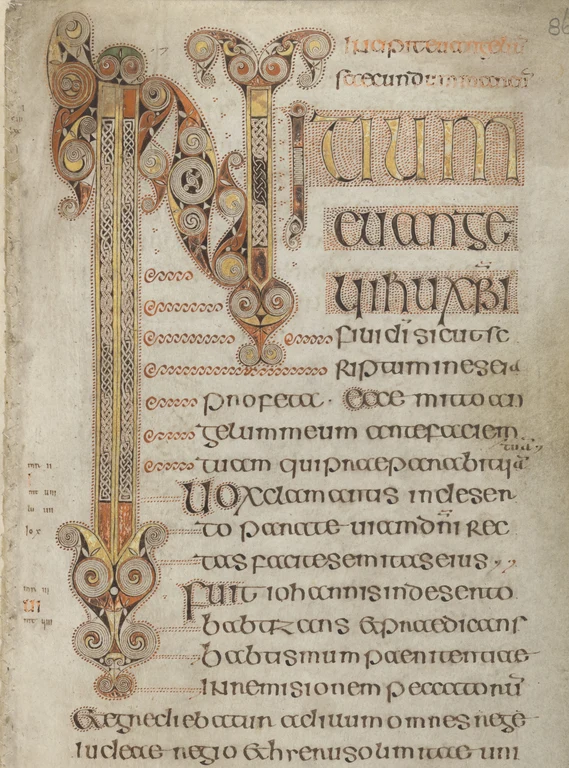 86
Incipit euangeliū
secundum marcū
INITIUM
euange
lii ihu xpi
filii di sicut sc
riptum in eseia
profeta · Ecce mitto an
gelum meum ante faciem
tuam qui praeparabit uiā tuā
Uox clamantis in deser
to parate uiam dn̄i rec
tas facite semitas eius
Fuit iohannis in deserto
babtizans & praedicans
babtismum paenitentiae
in remisionem peccatorū
& egrediebatur ad illum omnes rege
iudeae regio & hierusolimitae uni